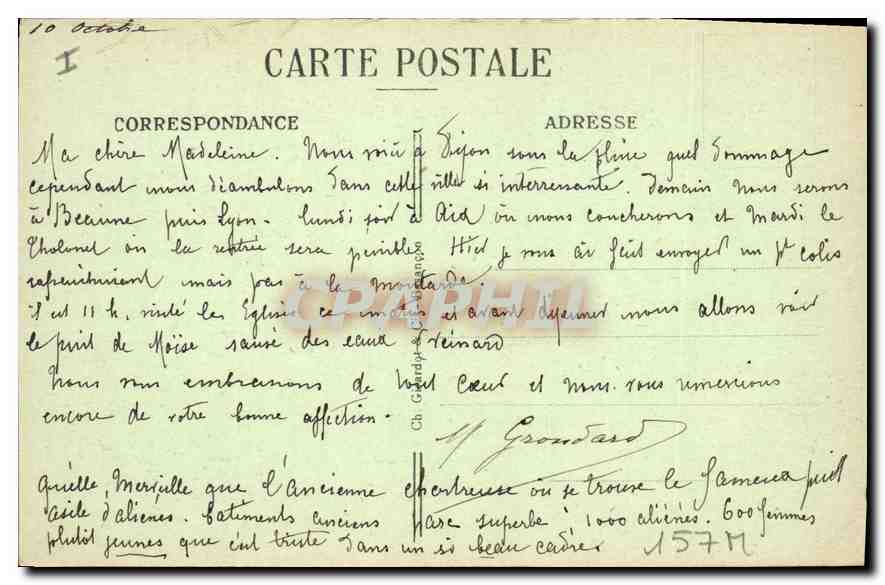 10 Octobre
I
CARTE POSTALE
CORRESPONDANCE
ADRESSE
Ma chère Madeleine. Nous voici à Dijon sous la pluie quel dommage
cependant nous déambulons dans cette ville si interressante. Demain nous serons
à Beaune puis Lyon - lundi soir à Aix où nous coucherons et Mardi le
Tholonet où la rentrée sera pénible. Hier je vous ai fait envoyer un pt colis
mais pas à la moutarde.
il est 11 h. visité les Eglises ce matin et avant déjeuner nous allons voir
le puit de Moïse sausé des eaux
Nous vous embrassons de tout cœur et nous vous remercions
encore de votre bonne affection.
M Grondard
Qu'elle Merveille que l'ancienne chartreuse où se trouve le fameux puit
asile d'alienés. batiments anciens parc superbe : 1000 aliénés. 600 femmes
plutôt jeunes que c'est triste dans un si beau cadre.
157M
Ch Girardot & Cie Besançon
CPAPHIL